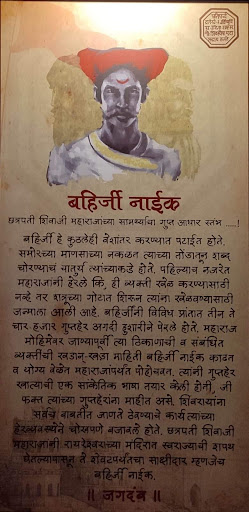 बहिर्जी नाईक
छत्रपती शिवाजी महाराजांच्या सामर्थ्याचा गुप्त आधार स्तंभ .....!
बहिर्जी हे कुठलेही वेशांतर करण्यात पटाईत होते.
समोरच्या माणसाच्या नकळत त्याच्या तोंडातून शब्द
चोरण्याचं चातुर्य त्यांच्याकडे होते. पहिल्याच नजरेत
महाराजांनी हेरले कि, ही व्यक्ती खेळ करण्यासाठी
नव्हे तर शत्रूच्या गोटात शिरून त्यांना खेळवण्यासाठी
जन्माला आली आहे. बहिर्जींनी विविध प्रांतात तीन ते
चार हजार गुप्तहेर अगदी हुशारीने पेरले होते. महाराज
मोहिमेवर जाण्यापूर्वी त्या ठिकाणाची व संबधित
व्यक्तींची खडान्-खडा माहिती बहिर्जी नाईक काढत
व योग्य वेळेत महाराजांपर्यंत पोहोचवत. त्यांनी गुप्तहेर
खात्याची एक सांकेतिक भाषा तयार केली होती, जी
फक्त त्यांच्या गुप्तहेरांना माहीत असे. शिवरायांना
सर्वच बाबतीत जाणते ठेवण्याचे कार्य त्यांच्या
हेरव्यवस्थेने चोखपणे बजावले होते. छत्रपती शिवाजी
महाराजांनी रायरेश्वराच्या मंदिरात स्वराज्याची शपथ
घेतल्यापासून ते शेवटपर्यंतचा साक्षीदार म्हणजेच
बहिर्जी नाईक.
॥ जगदंब ॥